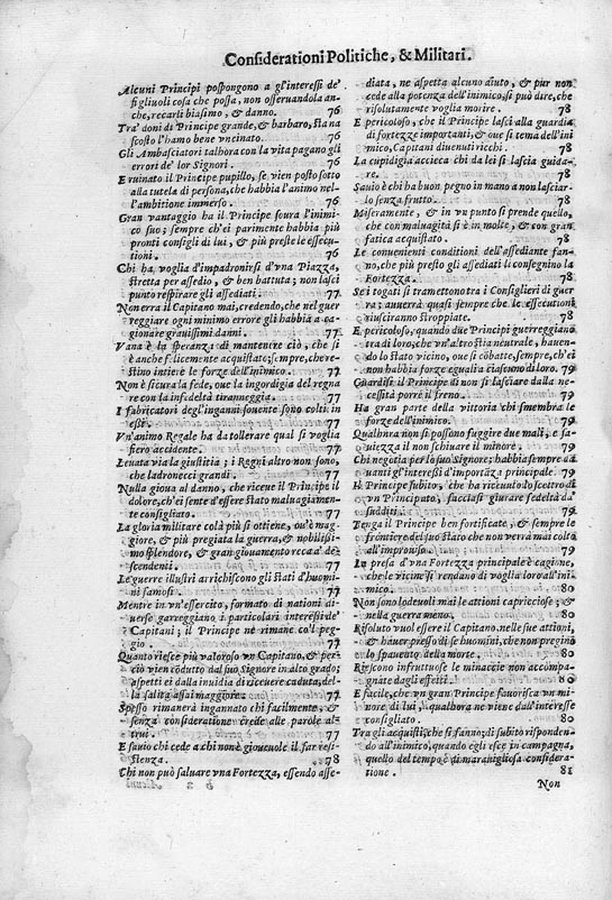 Considerationi Politiche, & Militari.
Alcuni Principi pospongono a gl'interessi de'
figliuoli cosa che possa, non osseruandola an-
che, recarli biasimo, & danno. 76
Tra' doni di Principe grande, & barbaro, sta na
scosto l'hamo bene vncinato. 76
Gli Ambasciatori talhora con la vita pagano gli
errori de' lor Signori. 76
E ruinato il Principe pupillo, se vien posto sotto
alla tutela di persona, che habbia l'animo nel-
l'ambitione immerso. 76
Gran vantaggio ha il Principe soura l'inimi-
co suo; sempre ch'ei parimente habbia più
pronti consigli di lui, & più preste le essecu-
tioni. 76
Chi ha voglia d'impadronirsi d'vna Piazza,
stretta per assedio, & ben battuta; non lasci
punto respirare gli assediati. 77
Non erra il Capitano mai, credendo, che nel guer
reggiare ogni minimo errore gli habbia a ca-
gionare grauissimi danni. 77
Vana è la speranza di mantenere ciò, che si
è anche felicemente acquistato; sempre, che re-
stino intiere le forze dell'inimico. 77
Non è sicura la fede, oue la ingordigia del regna
re con la infedeltà tiranneggia. 77
I fabricatori degl'inganni souente sono colti in
essi. 77
Vn'animo Regale ha da tollerare qual si voglia
fiero accidente. 77
Leuata via la giustitia; i Regni altro non sono,
che ladronecci grandi. 77
Nulla gioua al danno, che riceue il Principe il
dolore, ch'ei sente d'essere stato maluagiamen-
te consigliato. 77
La gloria militare colà più si ottiene, ou'è mag-
giore, & più pregiata la guerra, & nobilissi-
mo splendore, & gran giouamento reca a' de-
scendenti. 77
Le guerre illustri arrichiscono gli stati d'huomi-
ni famosi. 77
Mentre in vn'essercito, formato di nationi di-
uerse garreggiano i particolari interessi de'
Capitani; il Principe ne rimane co'l peg-
gio. 77
Quanto riesce più valoroso vn Capitano, & per-
ciò vien cōdutto dal suo Signore in alto grado;
aspetti ei dalla inuidia di riceuere caduta, del-
la salita assai maggiore. 77
Spesso rimanerà ingannato chi facilmente, &
senza consideratione crede alle parole al-
trui. 77
E sauio chi cede a chi non è gioueuole il far resi-
stenza. 78
Chi non può saluare vna Fortezza, essendo asse-
diata, ne aspetta alcuno aiuto, & pur non
cede alla potenza dell'inimico, si può dire, che
risolutamente voglia morire. 78
E pericoloso, che il Principe lasci alla guardia
di fortezze importanti, & oue si tema dell'ini
mico, Capitani diuenuti ricchi. 78
La cupidigia accieca chi da lei si lascia guida-
re. 78
Sauio è chi ha buon pegno in mano a non lasciar-
lo senza frutto. 78
Miseramente, & in vn punto si prende quello,
che con maluagità si è in molte, & con gran
fatica acquistato. 78
Le conuenienti conditioni dell'assediante fan-
no, che più presto gli assediati li consegnino la
Fortezza. 78
Sei togati si tramettono tra i Consiglieri di guer
ra; auuerrà quasi sempre che le essecutioni
riusciranno stroppiate. 78
E pericoloso, quando due Principi guerreggiano
tra di loro, che vn'altro stia neutrale, hauen-
do lo stato vicino, oue si cōbatte, sempre, ch'ei
non habbia forze eguali a ciascuno di loro. 79
Guardisi il Principe di non si lasciare dalla ne-
cessità porre il freno. 79
Ha gran parte della vittoria chi smembra le
forze dell'inimico. 79
Qualhora non si possono fuggire due mali, è sa-
uiezza il non schiuare il minore. 79
Chi negotia per lo suo Signore; habbia sempre da
uanti gl'interessi d'importāza principale. 79
Il Principe subito, che ha riceuuto lo scettro di
vn Principato, facciasi giurare fedeltà da'
sudditi. 79
Tenga il Principe ben fortificate, & sempre le
frontiere del suo stato che non verrà mai colto
all'improuiso. 79
La presa d'vna Fortezza principale è cagione,
che le vicine si rendano di voglia loro all'ini-
mico. 80
Non sono lodeuoli mai le attioni capricciose; &
nella guerra meno. 80
Risoluto vuol essere il Capitano nelle sue attioni,
& hauer presso di se huomini, che non pregino
lo spauento della morte. 80
Riescono infruttuose le minaccie non accompa-
gnate dagli effetti. 80
E facile, che vn gran Principe fauorisca vn mi-
nore di lui, qualhora ne viene dall'interesse
consigliato. 80
Tra gli acquisti, che si fanno; di subito risponden-
do all'inimico, quando egli esce in campagna,
quello del tempo è di marauigliosa considera-
tione. 81
Non